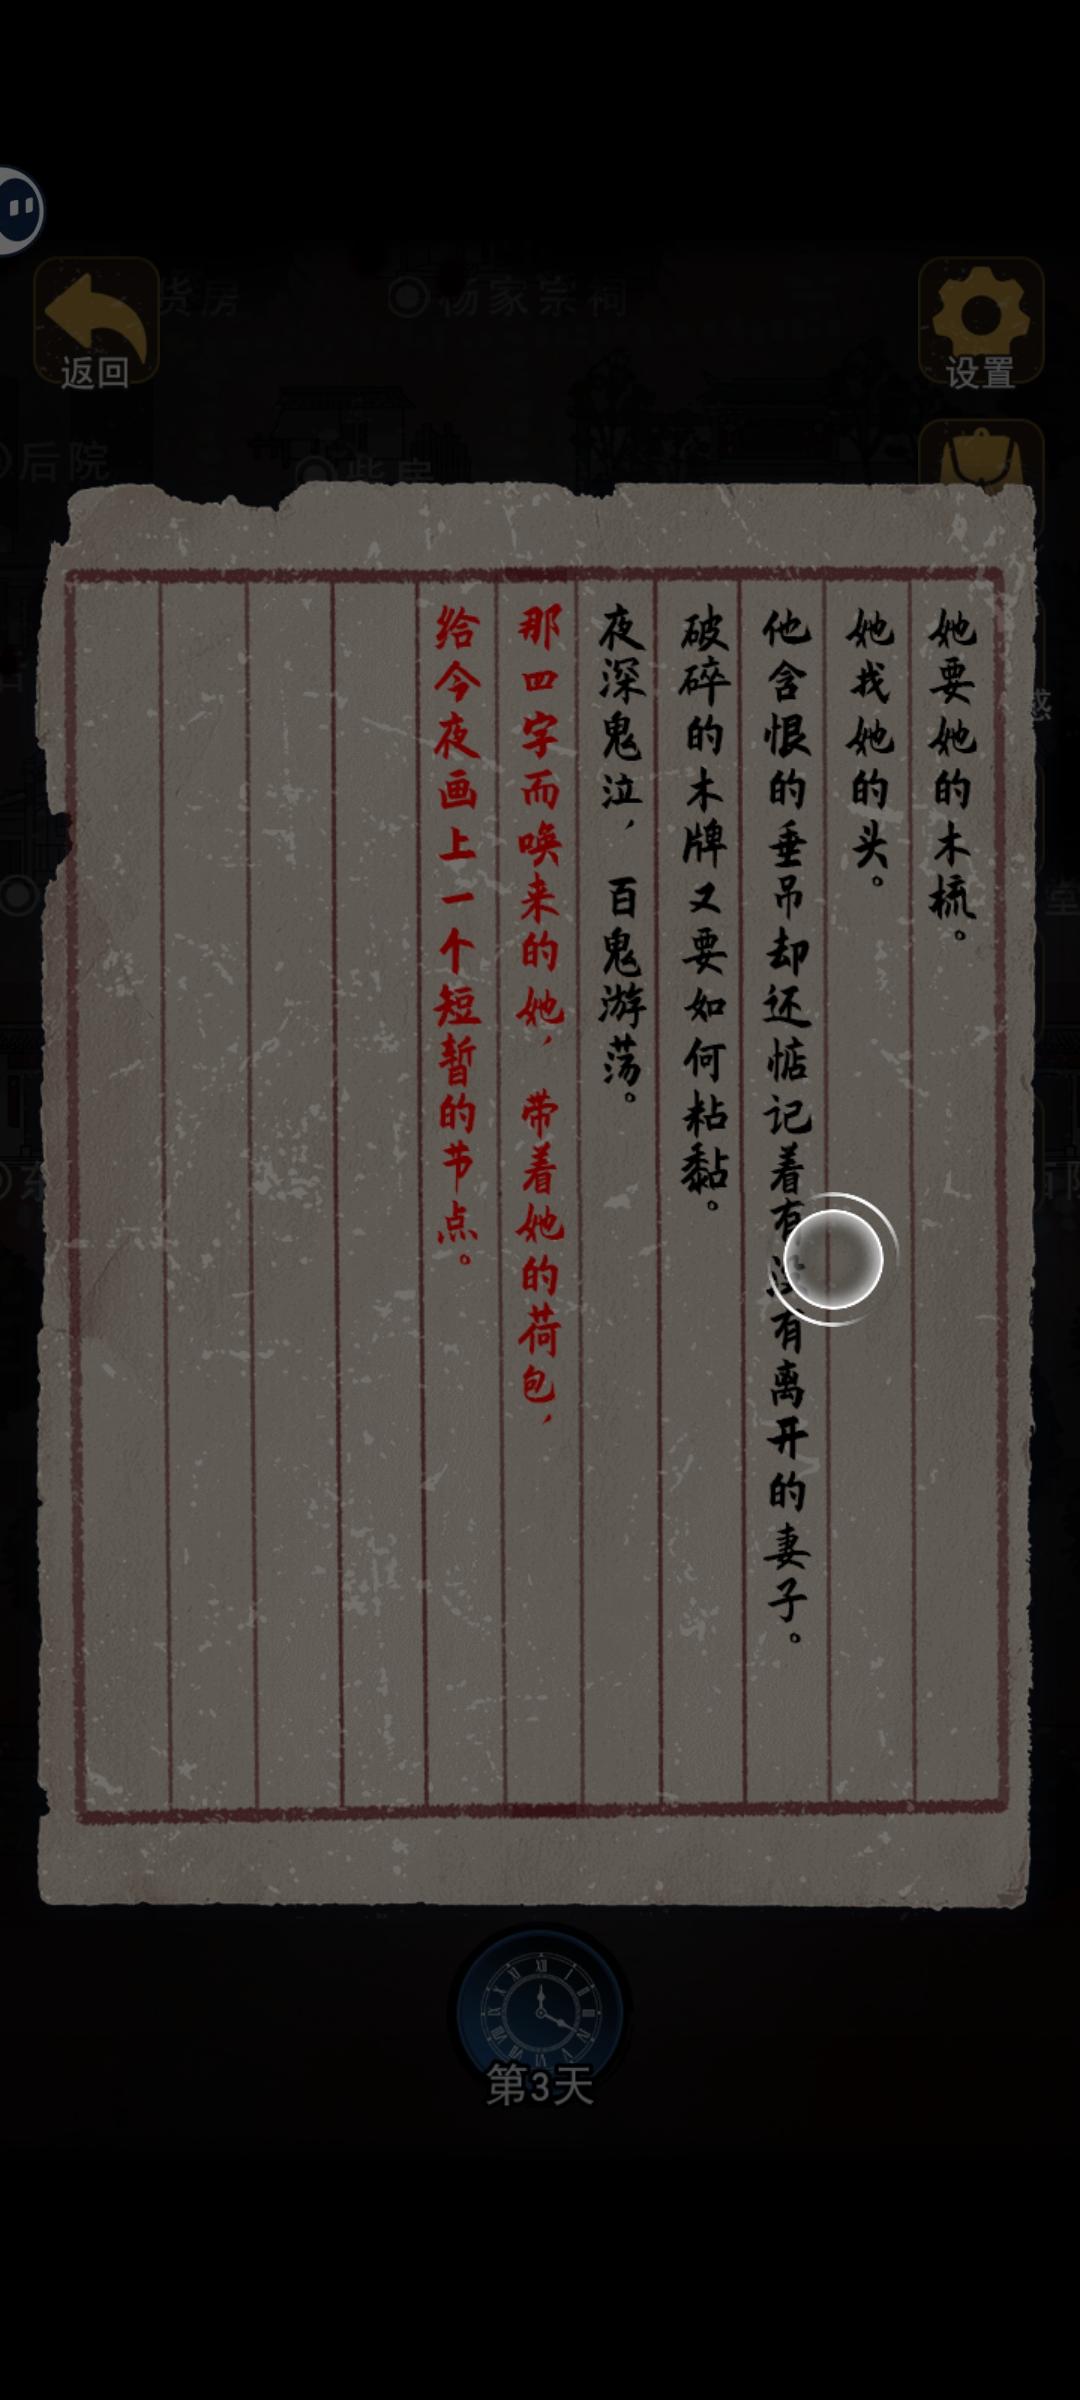 货房
杨家宗祠
返回
设置
后院
柴房
她要她的木梳。
她找她的头。
他含恨的垂吊却还惦记着有没有离开的妻子。
破碎的木牌又要如何粘黏。
夜深鬼泣，百鬼游荡。
那四字而唤来的她，带着她的荷包，
给今夜画上一个短暂的节点。
第3天